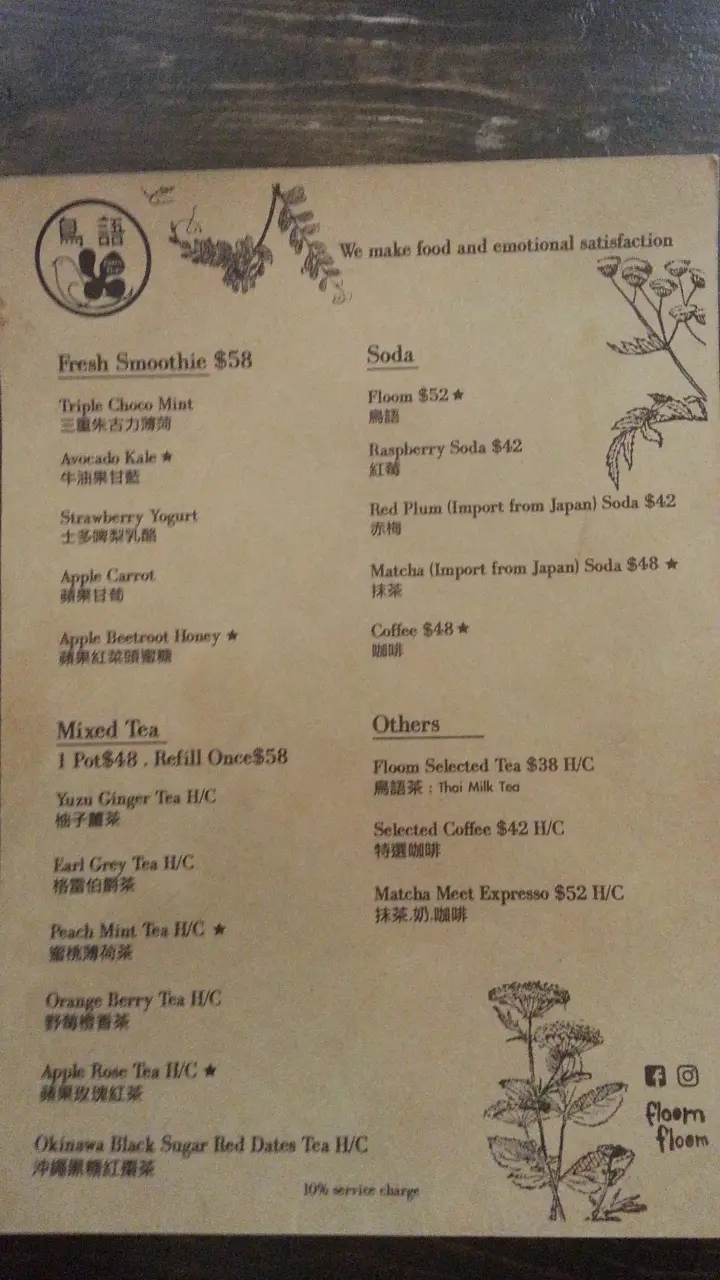 鳥語
We make food and emotional satisfaction
Fresh Smoothie $58
Triple Choco Mint
三重朱古力薄荷
Avocado Kale ★
牛油果甘藍
Strawberry Yogurt
士多啤梨乳酪
Apple Carrot
蘋果甘荀
Apple Beetroot Honey ★
蘋果紅菜頭蜜糖
Mixed Tea
1 Pot$48 . Refill Once$58
Yuzu Ginger Tea H/C
柚子薑茶
Earl Grey Tea H/C
格雷伯爵茶
Peach Mint Tea H/C ★
蜜桃薄荷茶
Orange Berry Tea H/C
野莓橙香茶
Apple Rose Tea H/C ★
蘋果玫瑰紅茶
Okinawa Black Sugar Red Dates Tea H/C
沖繩黑糖紅棗茶
Soda
Floom $52 ★
鳥語
Raspberry Soda $42
紅莓
Red Plum (Import from Japan) Soda $42
赤梅
Matcha (Import from Japan) Soda $48 ★
抹茶
Coffee $48 ★
咖啡
Others
Floom Selected Tea $38 H/C
鳥語茶 : Thai Milk Tea
Selected Coffee $42 H/C
特選咖啡
Matcha Meet Expresso $52 H/C
抹茶.奶.咖啡
floom
floom
10% service charge